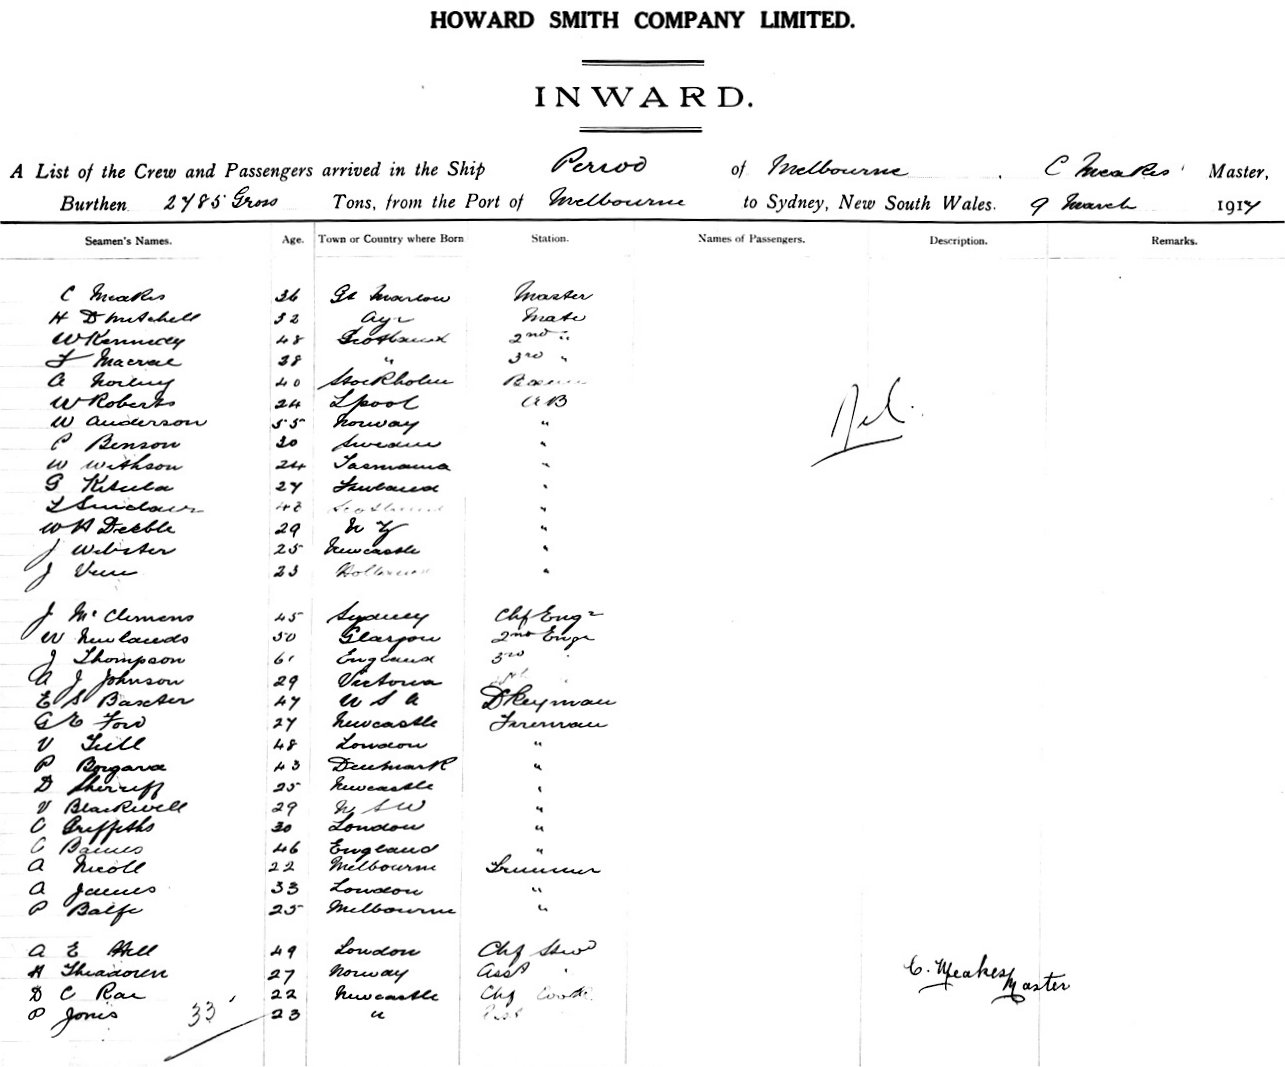 HOWARD SMITH COMPANY LIMITED.
INWARD.
A List of the Crew and Passengers arrived in the Ship Period of Melbourne, C Meakes Master,
Burthen 2785 Gross Tons, from the Port of Melbourne to Sydney, New South Wales. 9 March 1917
Seamen's Names. Age. Town or Country where Born Station. Names of Passengers. Description. Remarks.
C Meakes 36 Gt Marlow Master
H D Mitchell 32 Ayr Mate
W Kennedy 48 Scotland 2nd "
F Macrae 38 " 3rd "
A 40 Stockholm
W Roberts 24 Lpool AB
Nil.
W Anderson 55 Norway "
P Benson 30 Sweden "
W Withson 24 Tasmania "
G 27 Finland "
Sinclair 42 Scotland "
W H Deeble 29 N Z "
J Webster 25 Newcastle "
J 23 Holland "
J McClemens 45 Sydney Chf Engr
W Newlands 50 Glasgow 2nd Engr
J Thompson 61 England 3rd "
A J Johnson 29 Victoria
E S Baxter 47 U S A Dkeyman
G E Ford 27 Newcastle Fireman
V Tull 48 London "
P 43 Denmark "
D Sherriff 25 Newcastle "
V Blackwell 29 N S W "
C Griffiths 30 London "
C Baines 46 England "
A Nicoll 22 Melbourne Trimmer
A James 33 London "
P Balfe 25 Melbourne "
A E Hill 49 London Chf Stwd
H Theadoren 27 Norway Asst "
C. Meakes Master
D C Rae 22 Newcastle Chf Cook
P Jones 23 " Asst
33